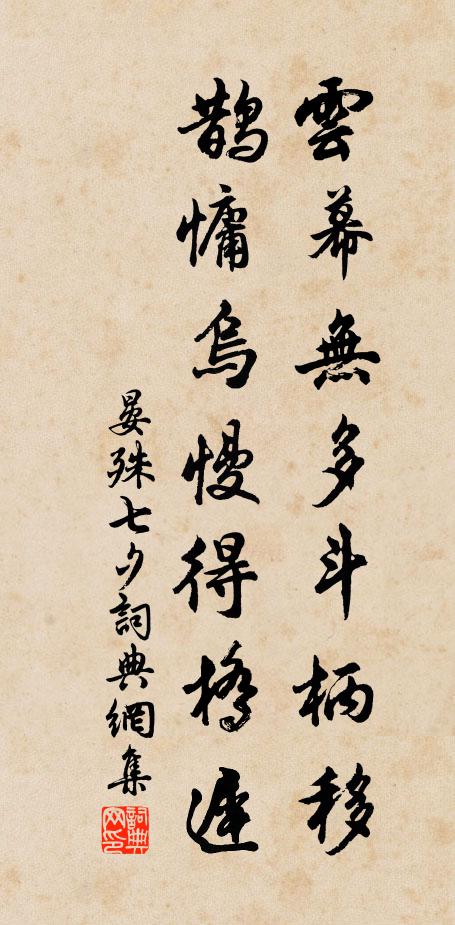 雲幕無多斗柄移
鵲慵烏慢得橋遲
晏殊七夕詞典網集
詞典
网印